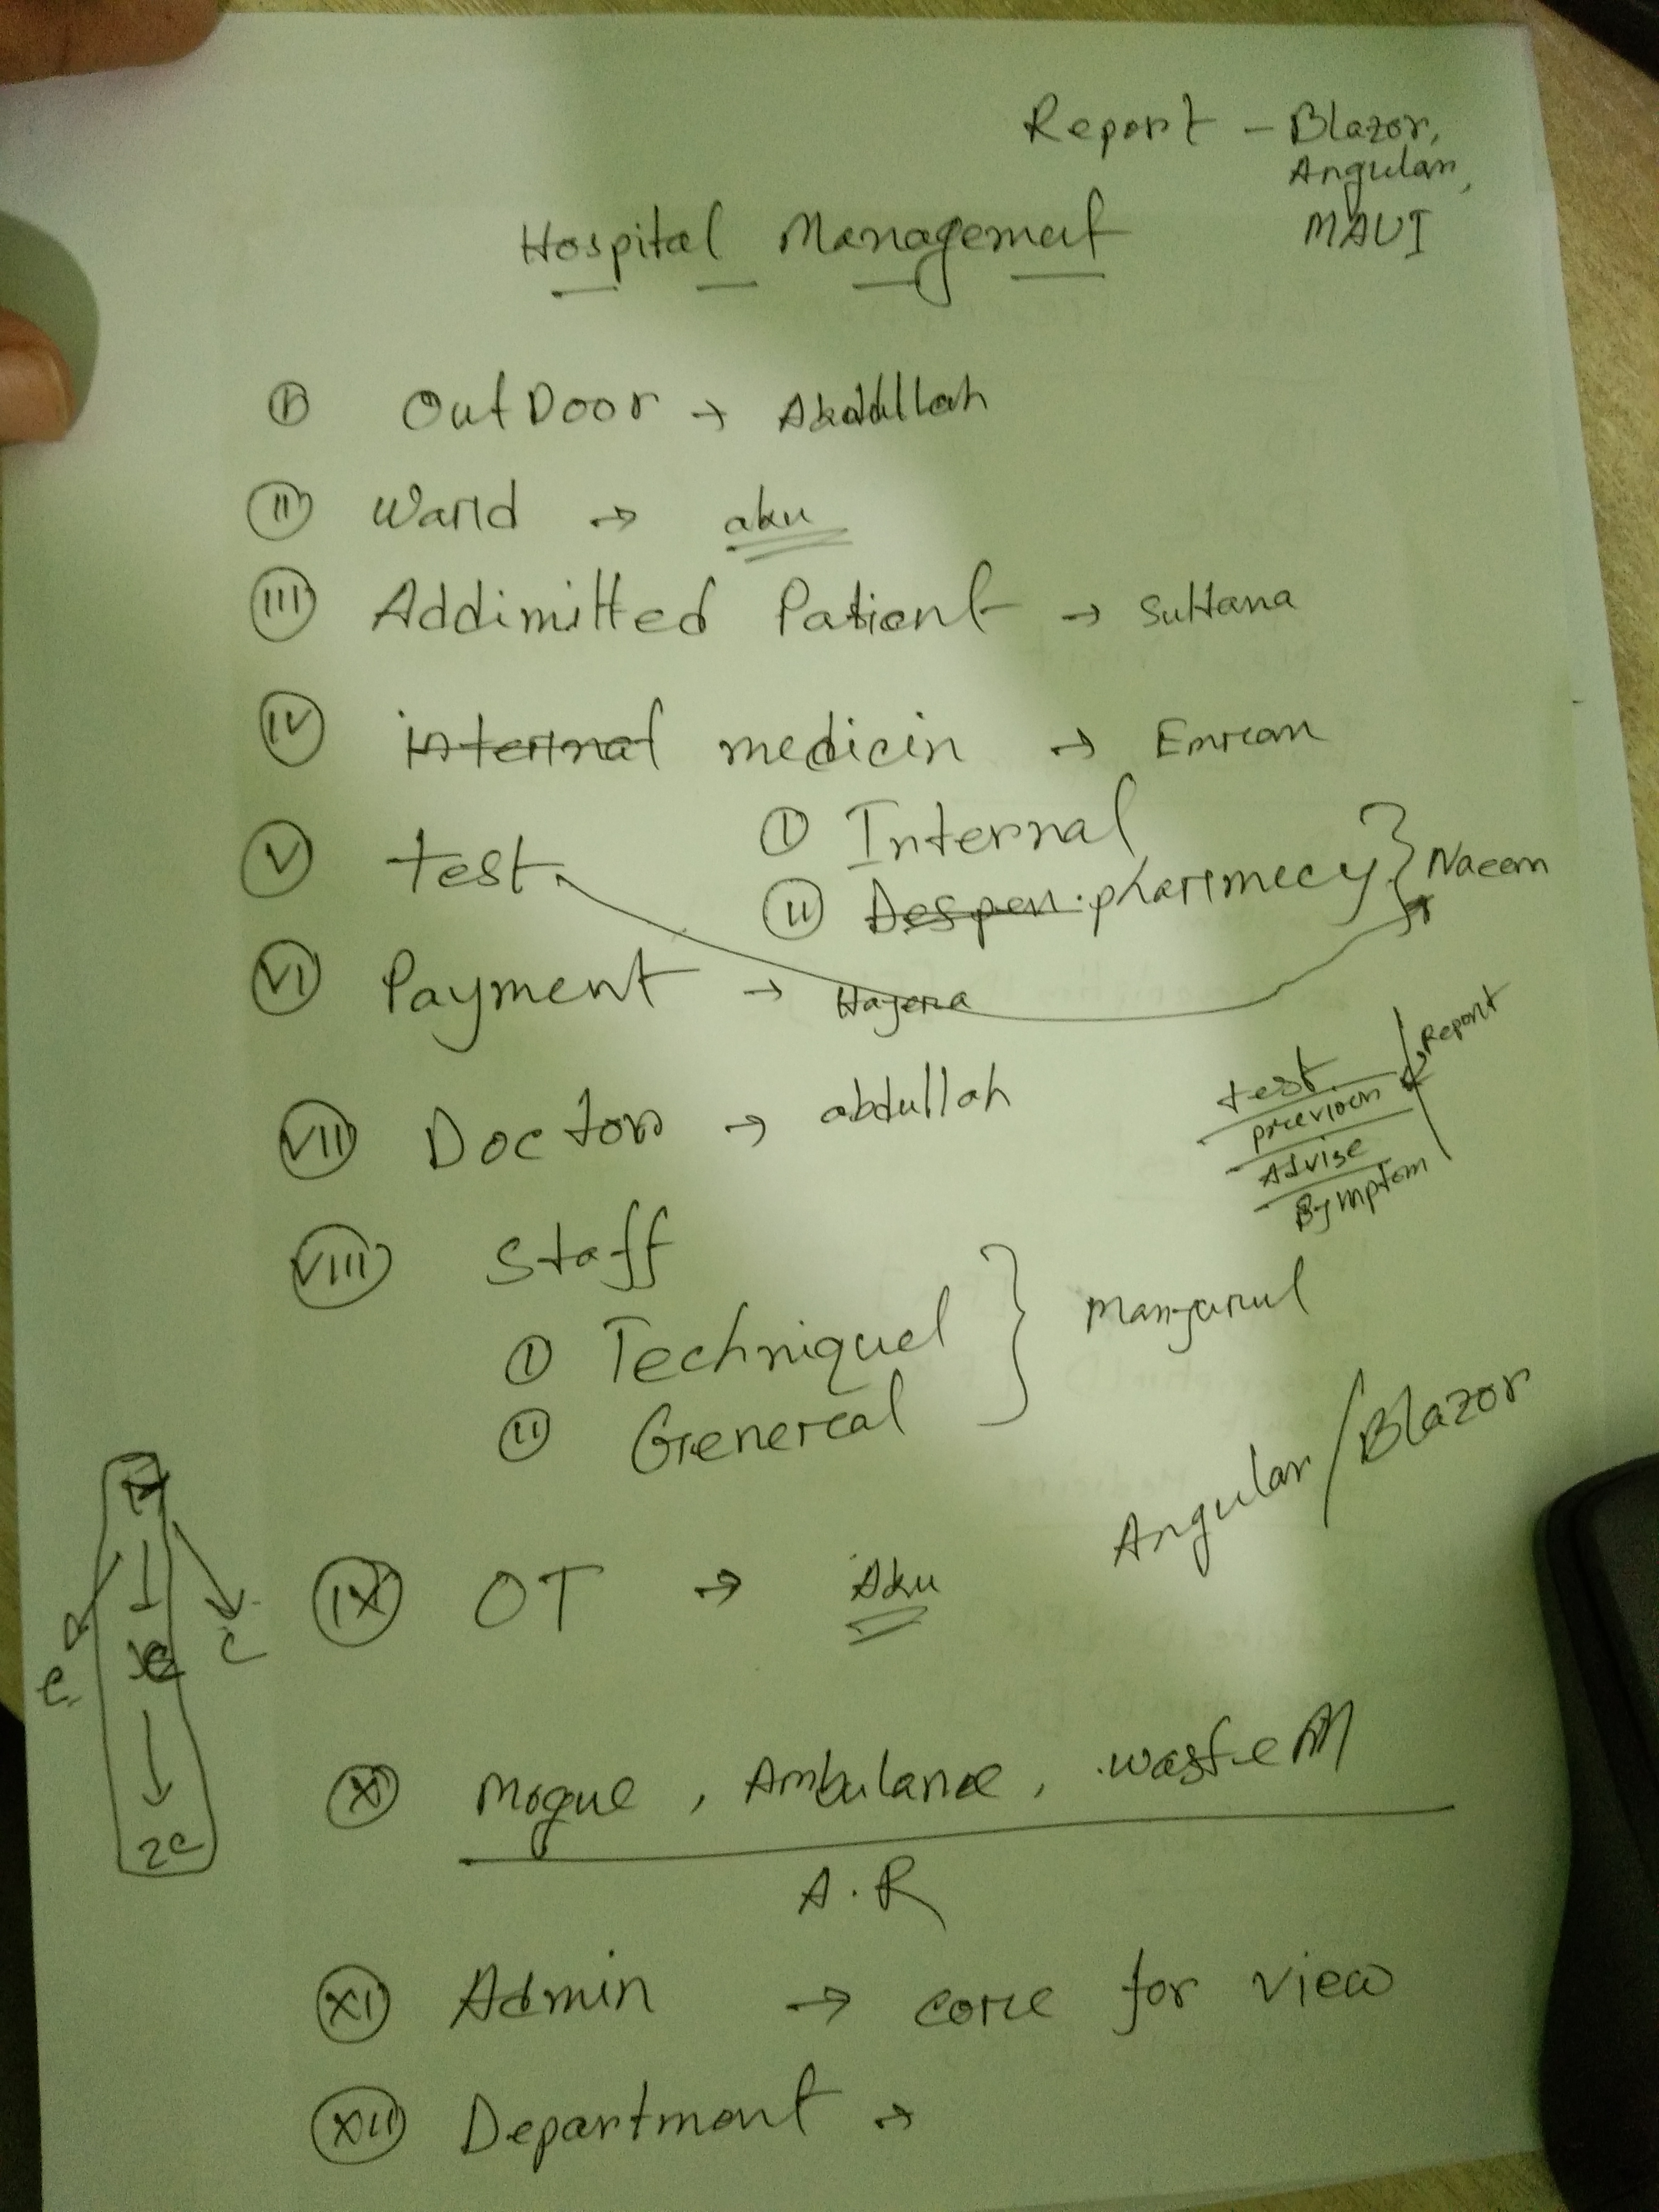 Report - Blazor,
Angular,
MAUI
Hospital Management
I OutDoor → Abddullah
II Ward → aku
III Addimitted Patient → Sultana
IV internal medicin → Emran
I Internal
II Despen. pharmecy } Naeem
V test
VI Payment → Hajera
VII Doctor → abdullah
Report
test
previous
Advise
Symptom
VIII Staff
I Techniquel
II Genereal } Manjurul
Angular/Blazor
IX OT → Aku
X Mogue, Ambulance, waste M
A.R
XI Admin → core for view
XII Department →
e
c
2e